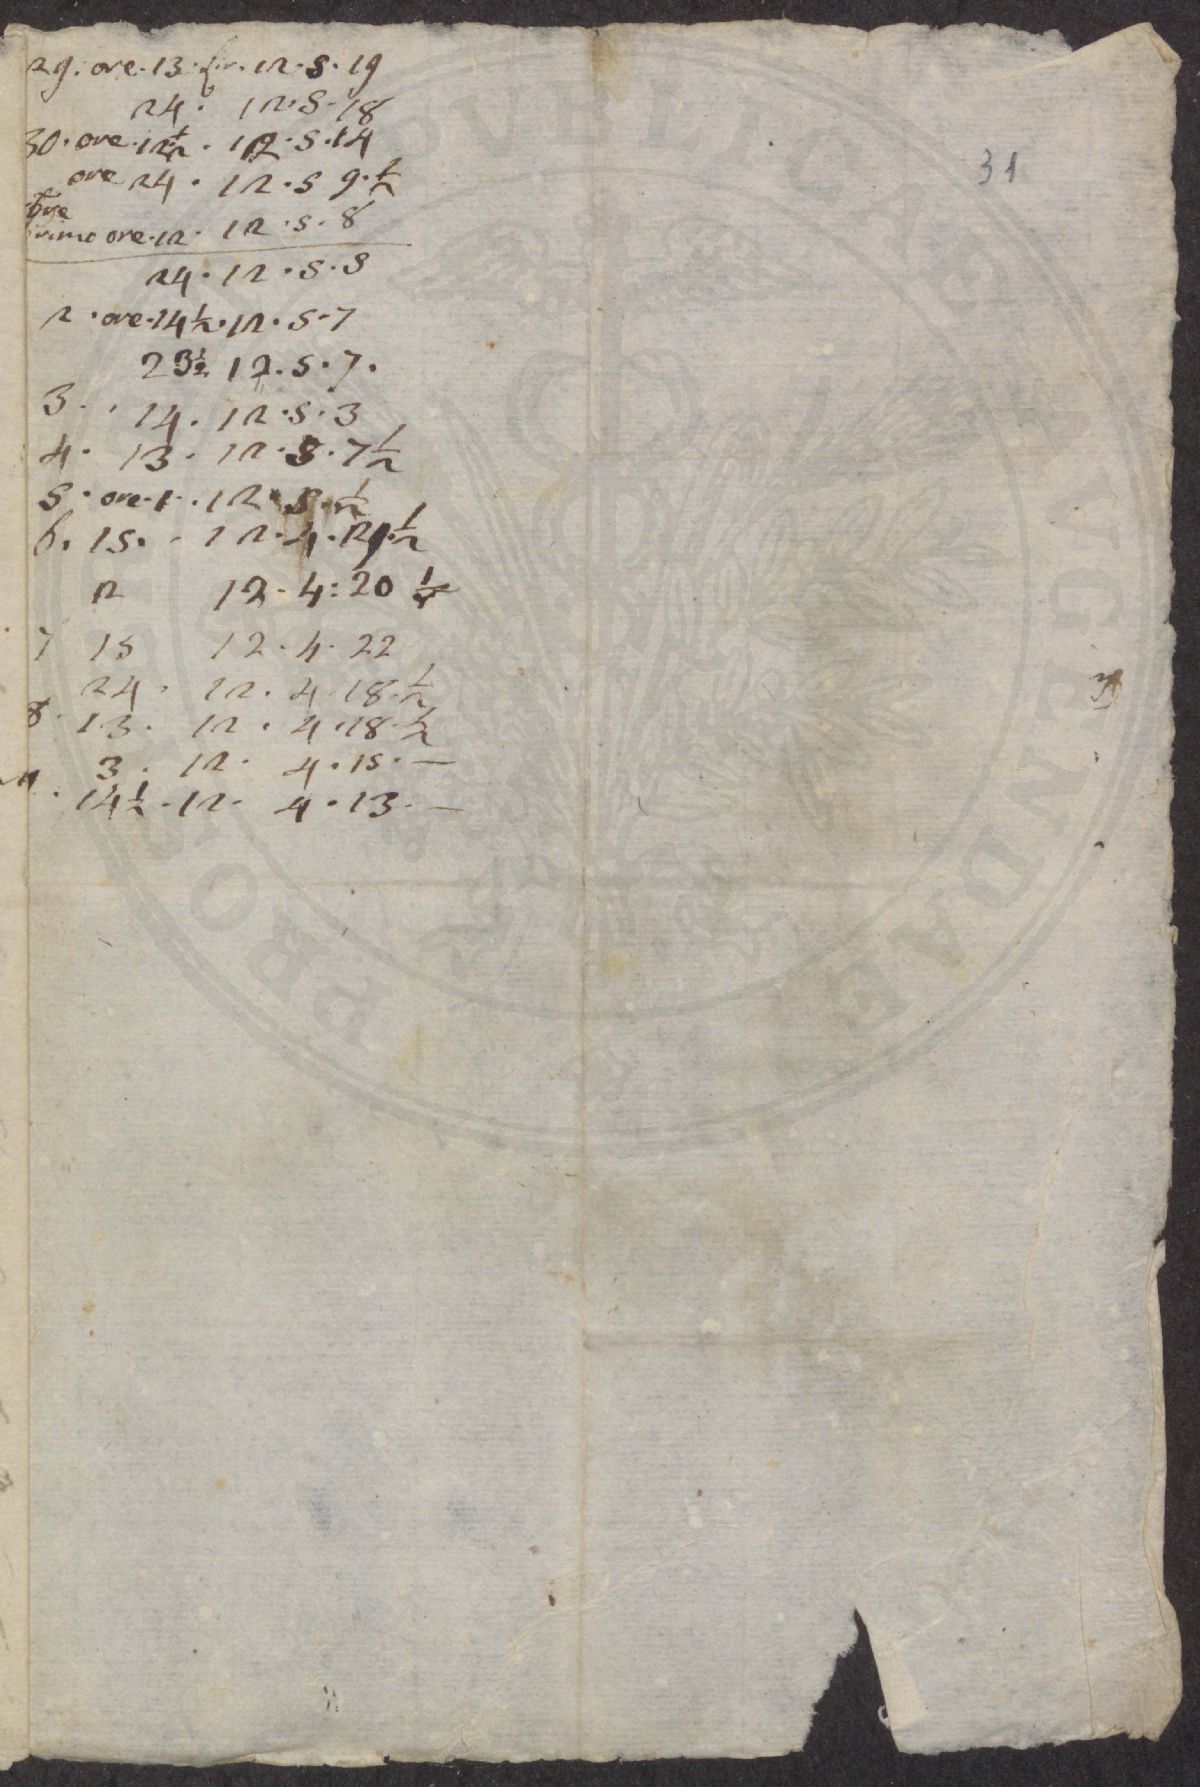 29. ore. 13. fu. 12. 5. 19
24. 12. 5. 18
30. ore. 12½. 12. 5. 14
ore 24. 12. 5 9. ½
primo ore. 12. 12. 5. 8
24. 12. 5. 5
2. ore. 14½. 12. 5. 7
23½ 12. 5. 7.
3. . 14. 12. 5. 3
4. 13. 12. 5. 7½
5. ore. 12. 5. ½
6. 15. . 12. 4. ½
12 12. 4: 20
7 15 12. 4. 22
24. 12. 4. 18. ½
8. 13. 12. 4. 18. ½
3. 12. 4. 15. —
14½. 12. 4. 13. —
31